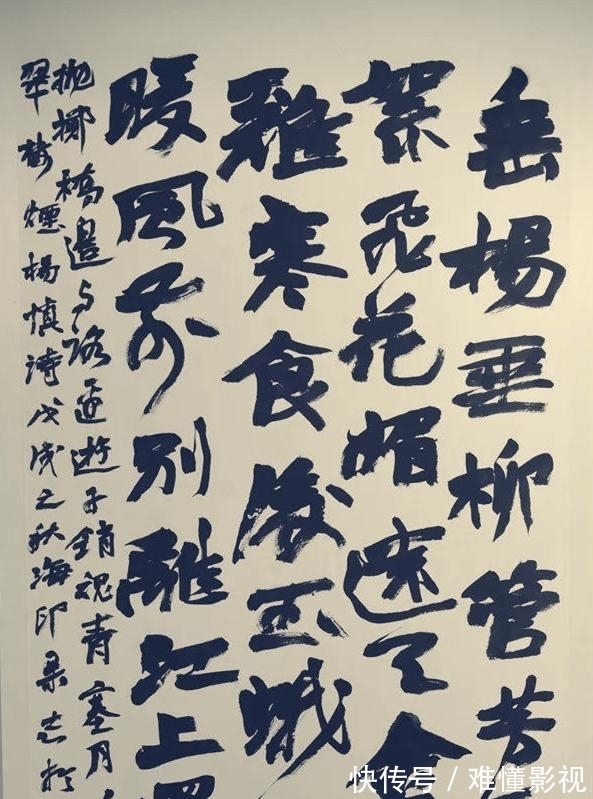 垂楊垂柳管芳
絮飛花媚遠天金
雞寒食後玉蛾
暖風前別離江上
拋擲橋邊与路邊遊子銷魂青塞月
翠樓煙楊慎詩戊戌之秋海印志於
快传号 / 难懂影视